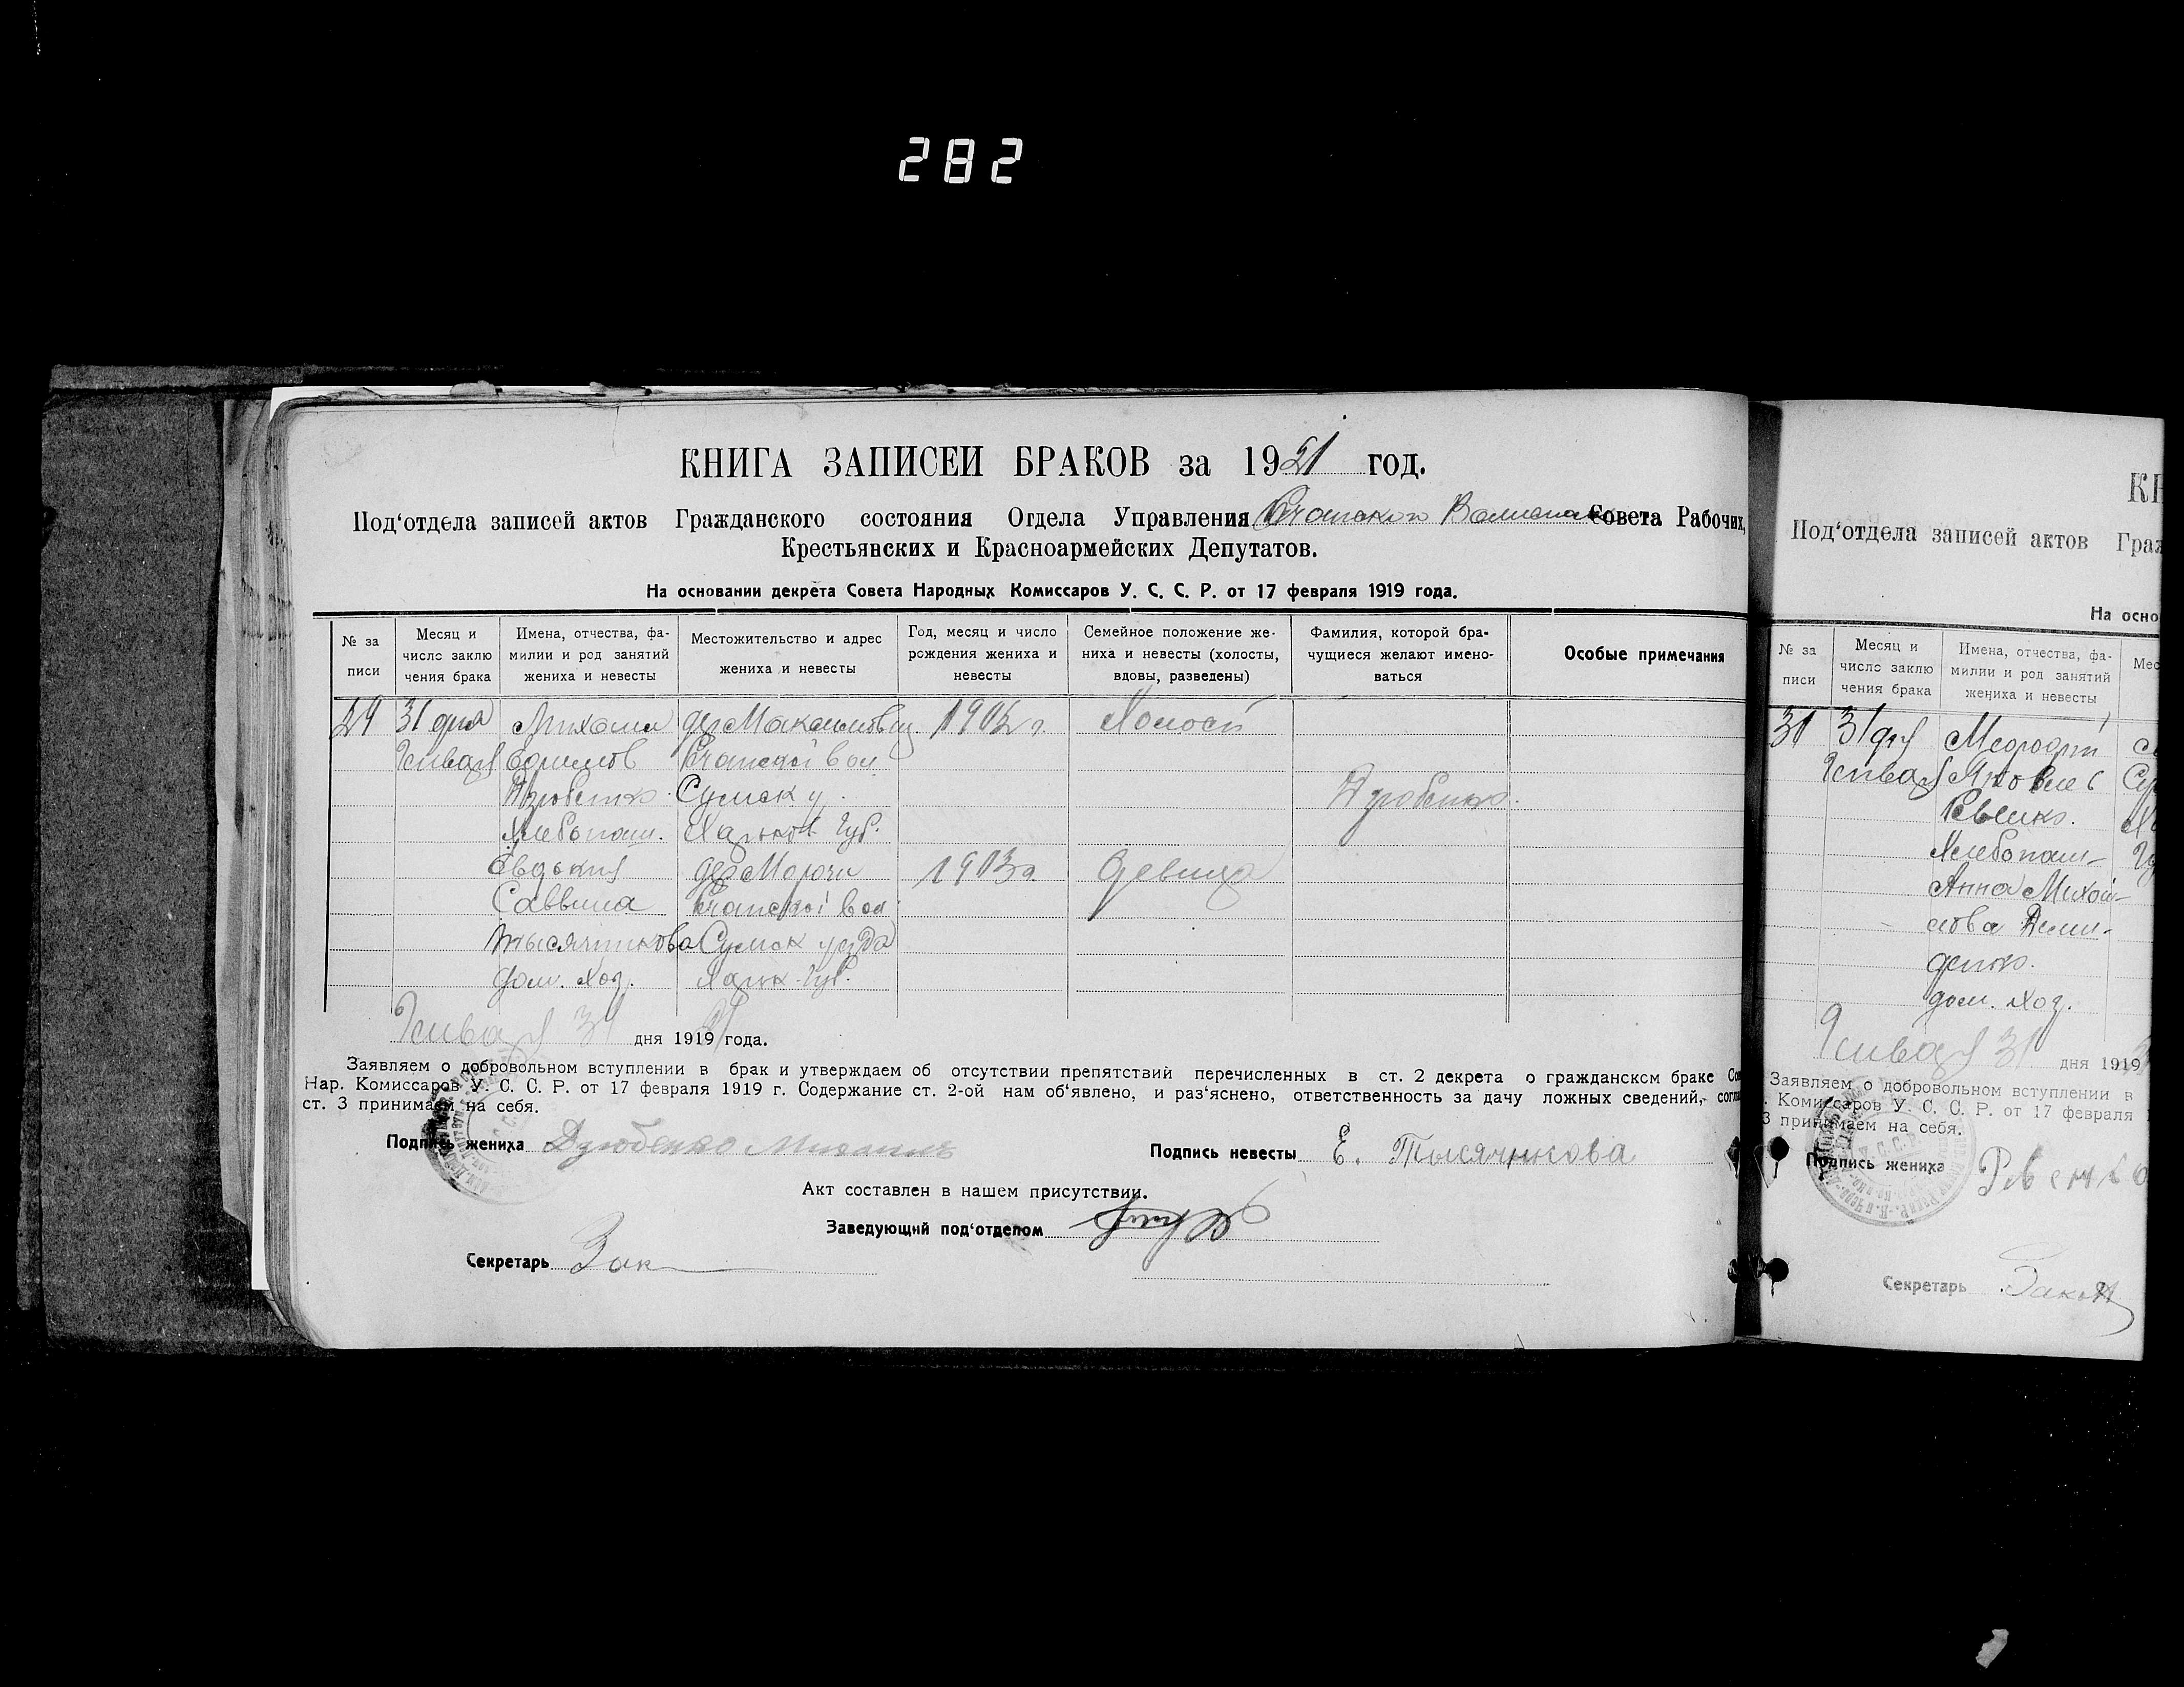 282
КНИГА ЗАПИСЕЙ БРАКОВ за 1921 год.
Под‘отдела записей актов Гражданского состояния Отдела Управления Совета Рабочих,
Крестьянских и Красноармейских Депутатов.
На основании декрета Совета Народных Комиссаров У. С. С. Р. от 17 февраля 1919 года.
№ за писи
Месяц и число заклю чения брака
Имена, отчества, фа- милии и род занятий жениха и невесты
Местожительство и адрес жениха и невесты
Год, месяц и число рождения жениха и невесты
Семейное положение же- ниха и невесты (холосты, вдовы, разведены)
Фамилия, которой бра- чущиеся желают имено- ваться
Особые примечания
29 31 дня Михаил дер Максимовщ. 1902 г. Холост
Января Ефимов вол
Дзюбенко Сумск у. Дзюбенко
Хлебопаш. Харьков Губ.
Евдокия дер Морочи 1903 г. девица
Саввина вол
Тысячникова Сумск уезда
дом. хоз. Харьк. Губ.
Января 31 дня 1921 года.
Заявляем о добровольном вступлении в брак и утверждаем об отсутствии препятствий перечисленных в ст. 2 декрета о гражданском браке Сов
Нар. Комиссаров У. С. С. Р. от 17 февраля 1919 г. Содержание ст. 2-ой нам об‘явлено, и раз‘яснено, ответственность за дачу ложных сведений, согла
ст. 3 принимаем на себя.
Подпись жениха Дзюбенко Михаилъ
Подпись невесты Е. Тысячникова
Акт составлен в нашем присутствии.
Заведующий под‘отделом
Секретарь Зак
КН
Под‘отдела записей актов Граж
На осно
№ за писи
Месяц и число заклю чения брака
Имена, отчества, фа- милии и род занятий жениха и невесты
Мес
31 31 дня
Января Яковлев
Ревенко.
Хлебопаш-
Анна Михай-
лова Деми-
денко.
дом. хоз.
Января 31 дня 1919
Заявляем о добровольном вступлении в
. Комиссаров У. С. С. Р. от 17 февраля 1
3 принимаем на себя.
Подпись жениха Ревенко
Секретарь